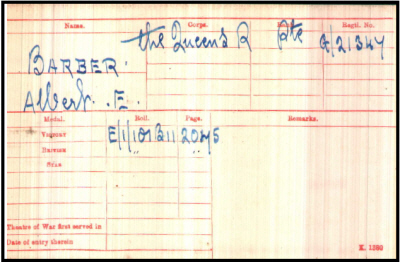 Name. Corps. Rank. Regtl. No.
The Queen's R Pte G/21347
BARBER.
Albert. E.
Medal. Roll. Page. Remarks.
VICTORY E/1/101B11 2045
BRITISH " "
STAR
Theatre of War first served in
Date of entry therein
K. 1380